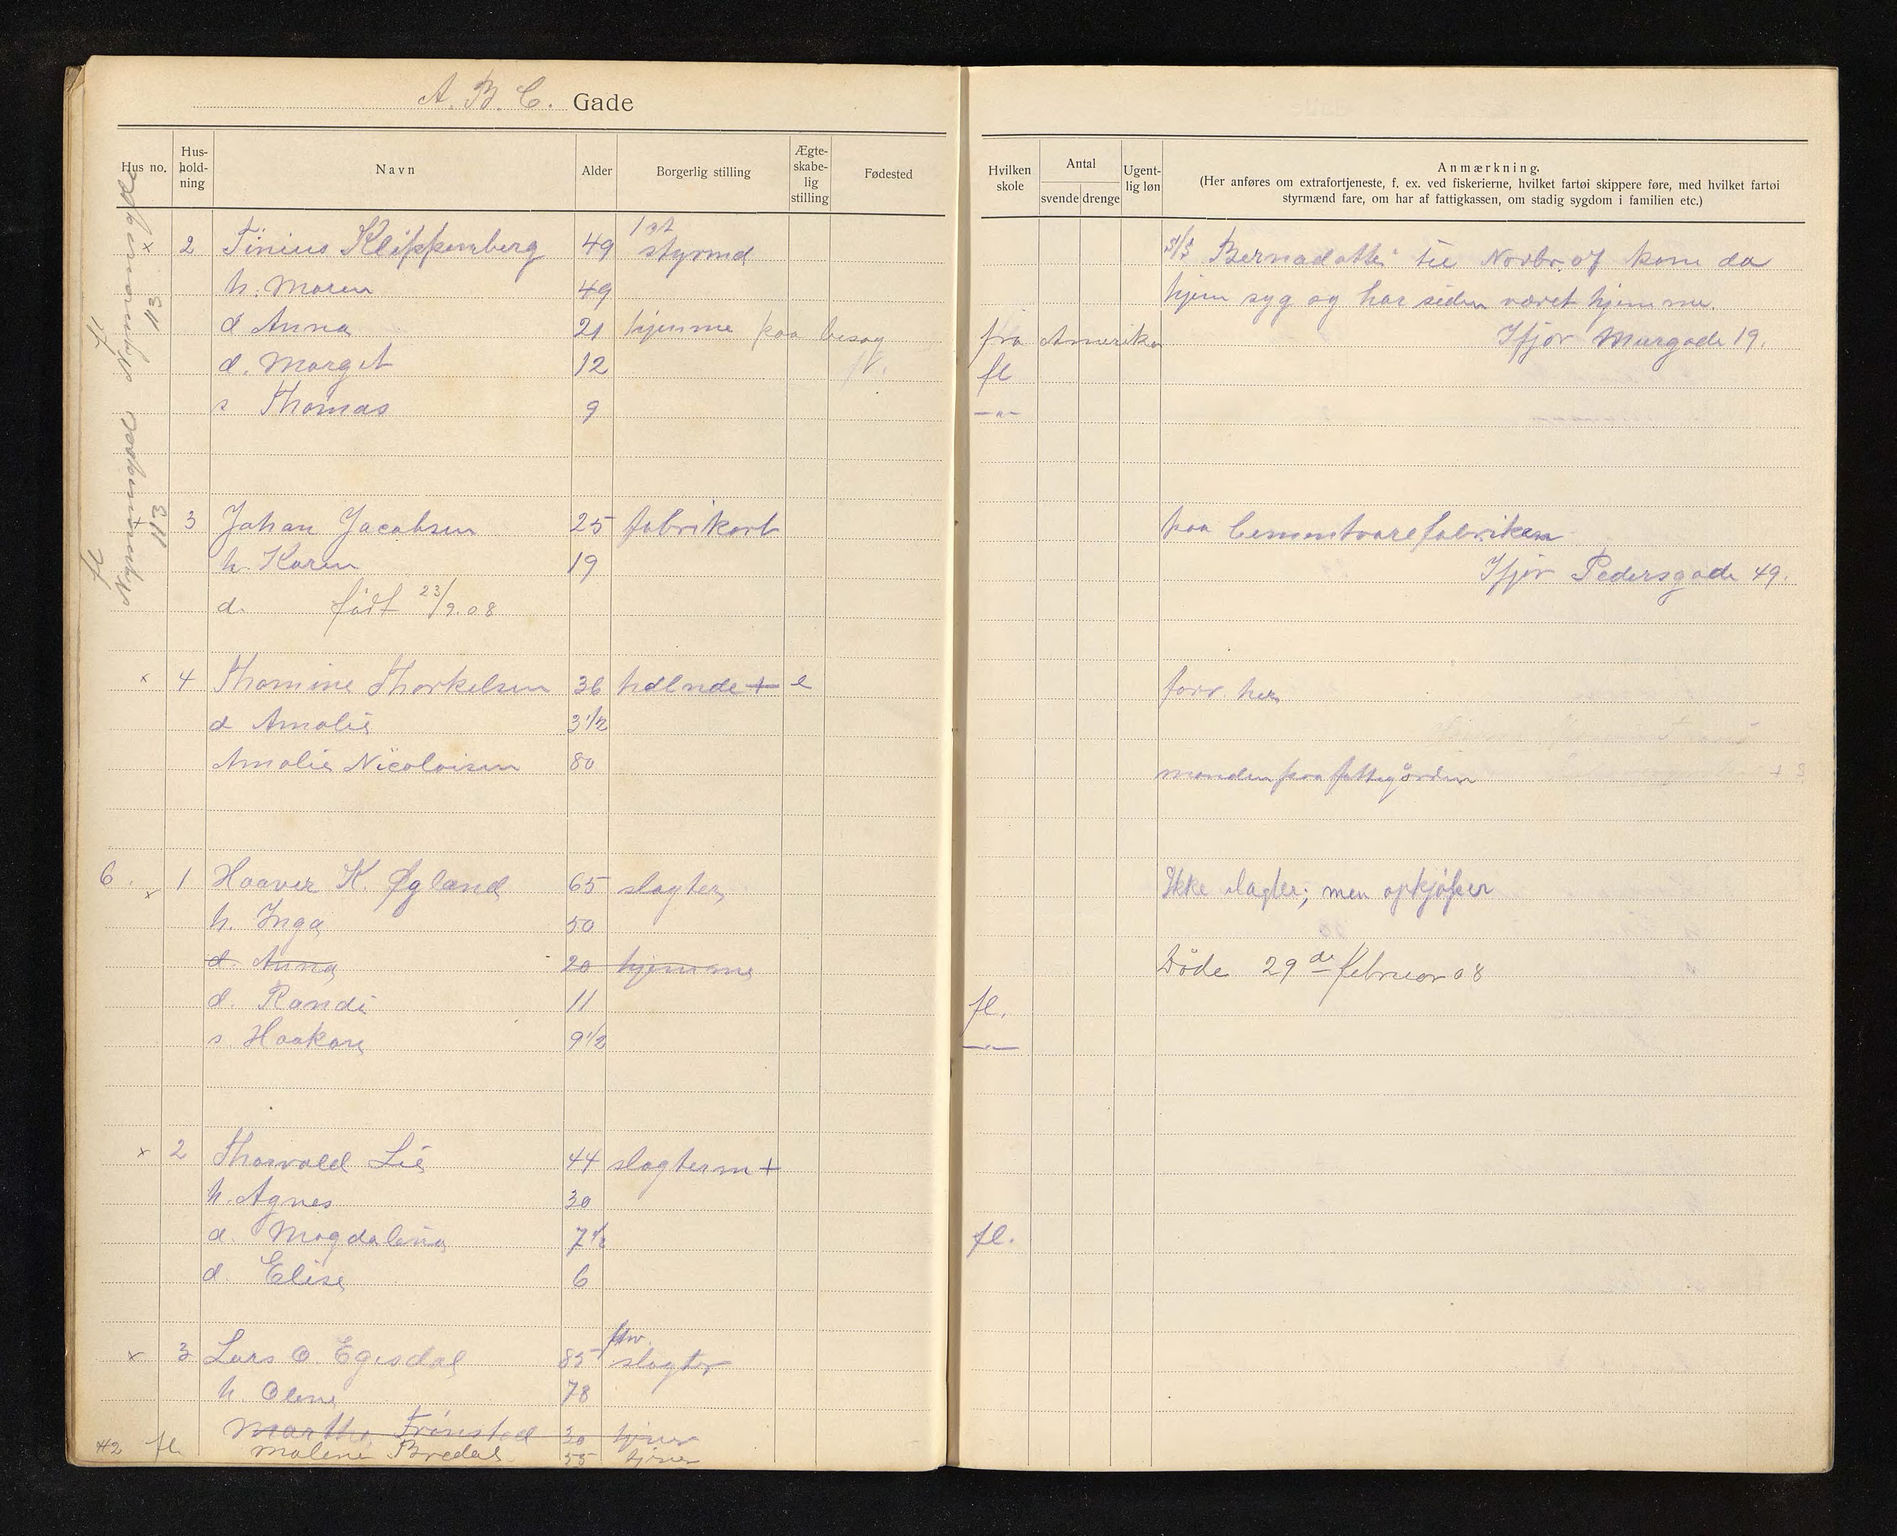 A. B. C. Gade
Hus no. Hus-hold-ning Navn Alder Borgerlig stilling Ægte-skabe-lig stilling Fødested
Hvilken skole Antal svende drenge Ugent-lig løn Anmærkning.
(Her anføres om extrafortjeneste, f. ex. ved fiskerierne, hvilket fartøi skippere føre, med hvilket fartøi
styrmænd fare, om har af fattigkassen, om stadig sygdom i familien etc.)
x 2 Tinius Klippenberg 49 1st styrmd S/S Bernadotte til Novbr. 07 kom da
h. Maren 49 hjem syg og har siden været hjemme.
d Anna 21 hjemme paa besøg fra Amerika Ifjor Murgade 19.
d. Margit 12 fl
s Thomas 9 —"—
3 Johan Jacobsen 25 fabrikarb paa Cementvarefabriken
h. Karen 19 Ifjor Pedersgade 49.
d. født 23/9.08
x 4 Thomine Thorkelsen 36 hdlnde + e forr. her
d Amalie 3 1/2
Amalie Nicolaisen 80 manden paa fattigården
6. x 1 Haaver K. Øgland 65 slagter Ikke slagter; men opkjøper
h. Inga 50
d. Anna 20 hjemme Døde 29de februar 08
d. Randi 11 fl.
s. Haakon 9 1/2 —"—
x 2 Thorvald Lie 44 slagterm +
h. Agnes 30
d. Magdalena 7 1/2 fl.
d. Elise 6
x 3 Lars O. Egisdal 85 forr. slagter
h. Olene 78
Martha Frønstad 30 tjener
H2 fl Malene Bredal 55 tjener